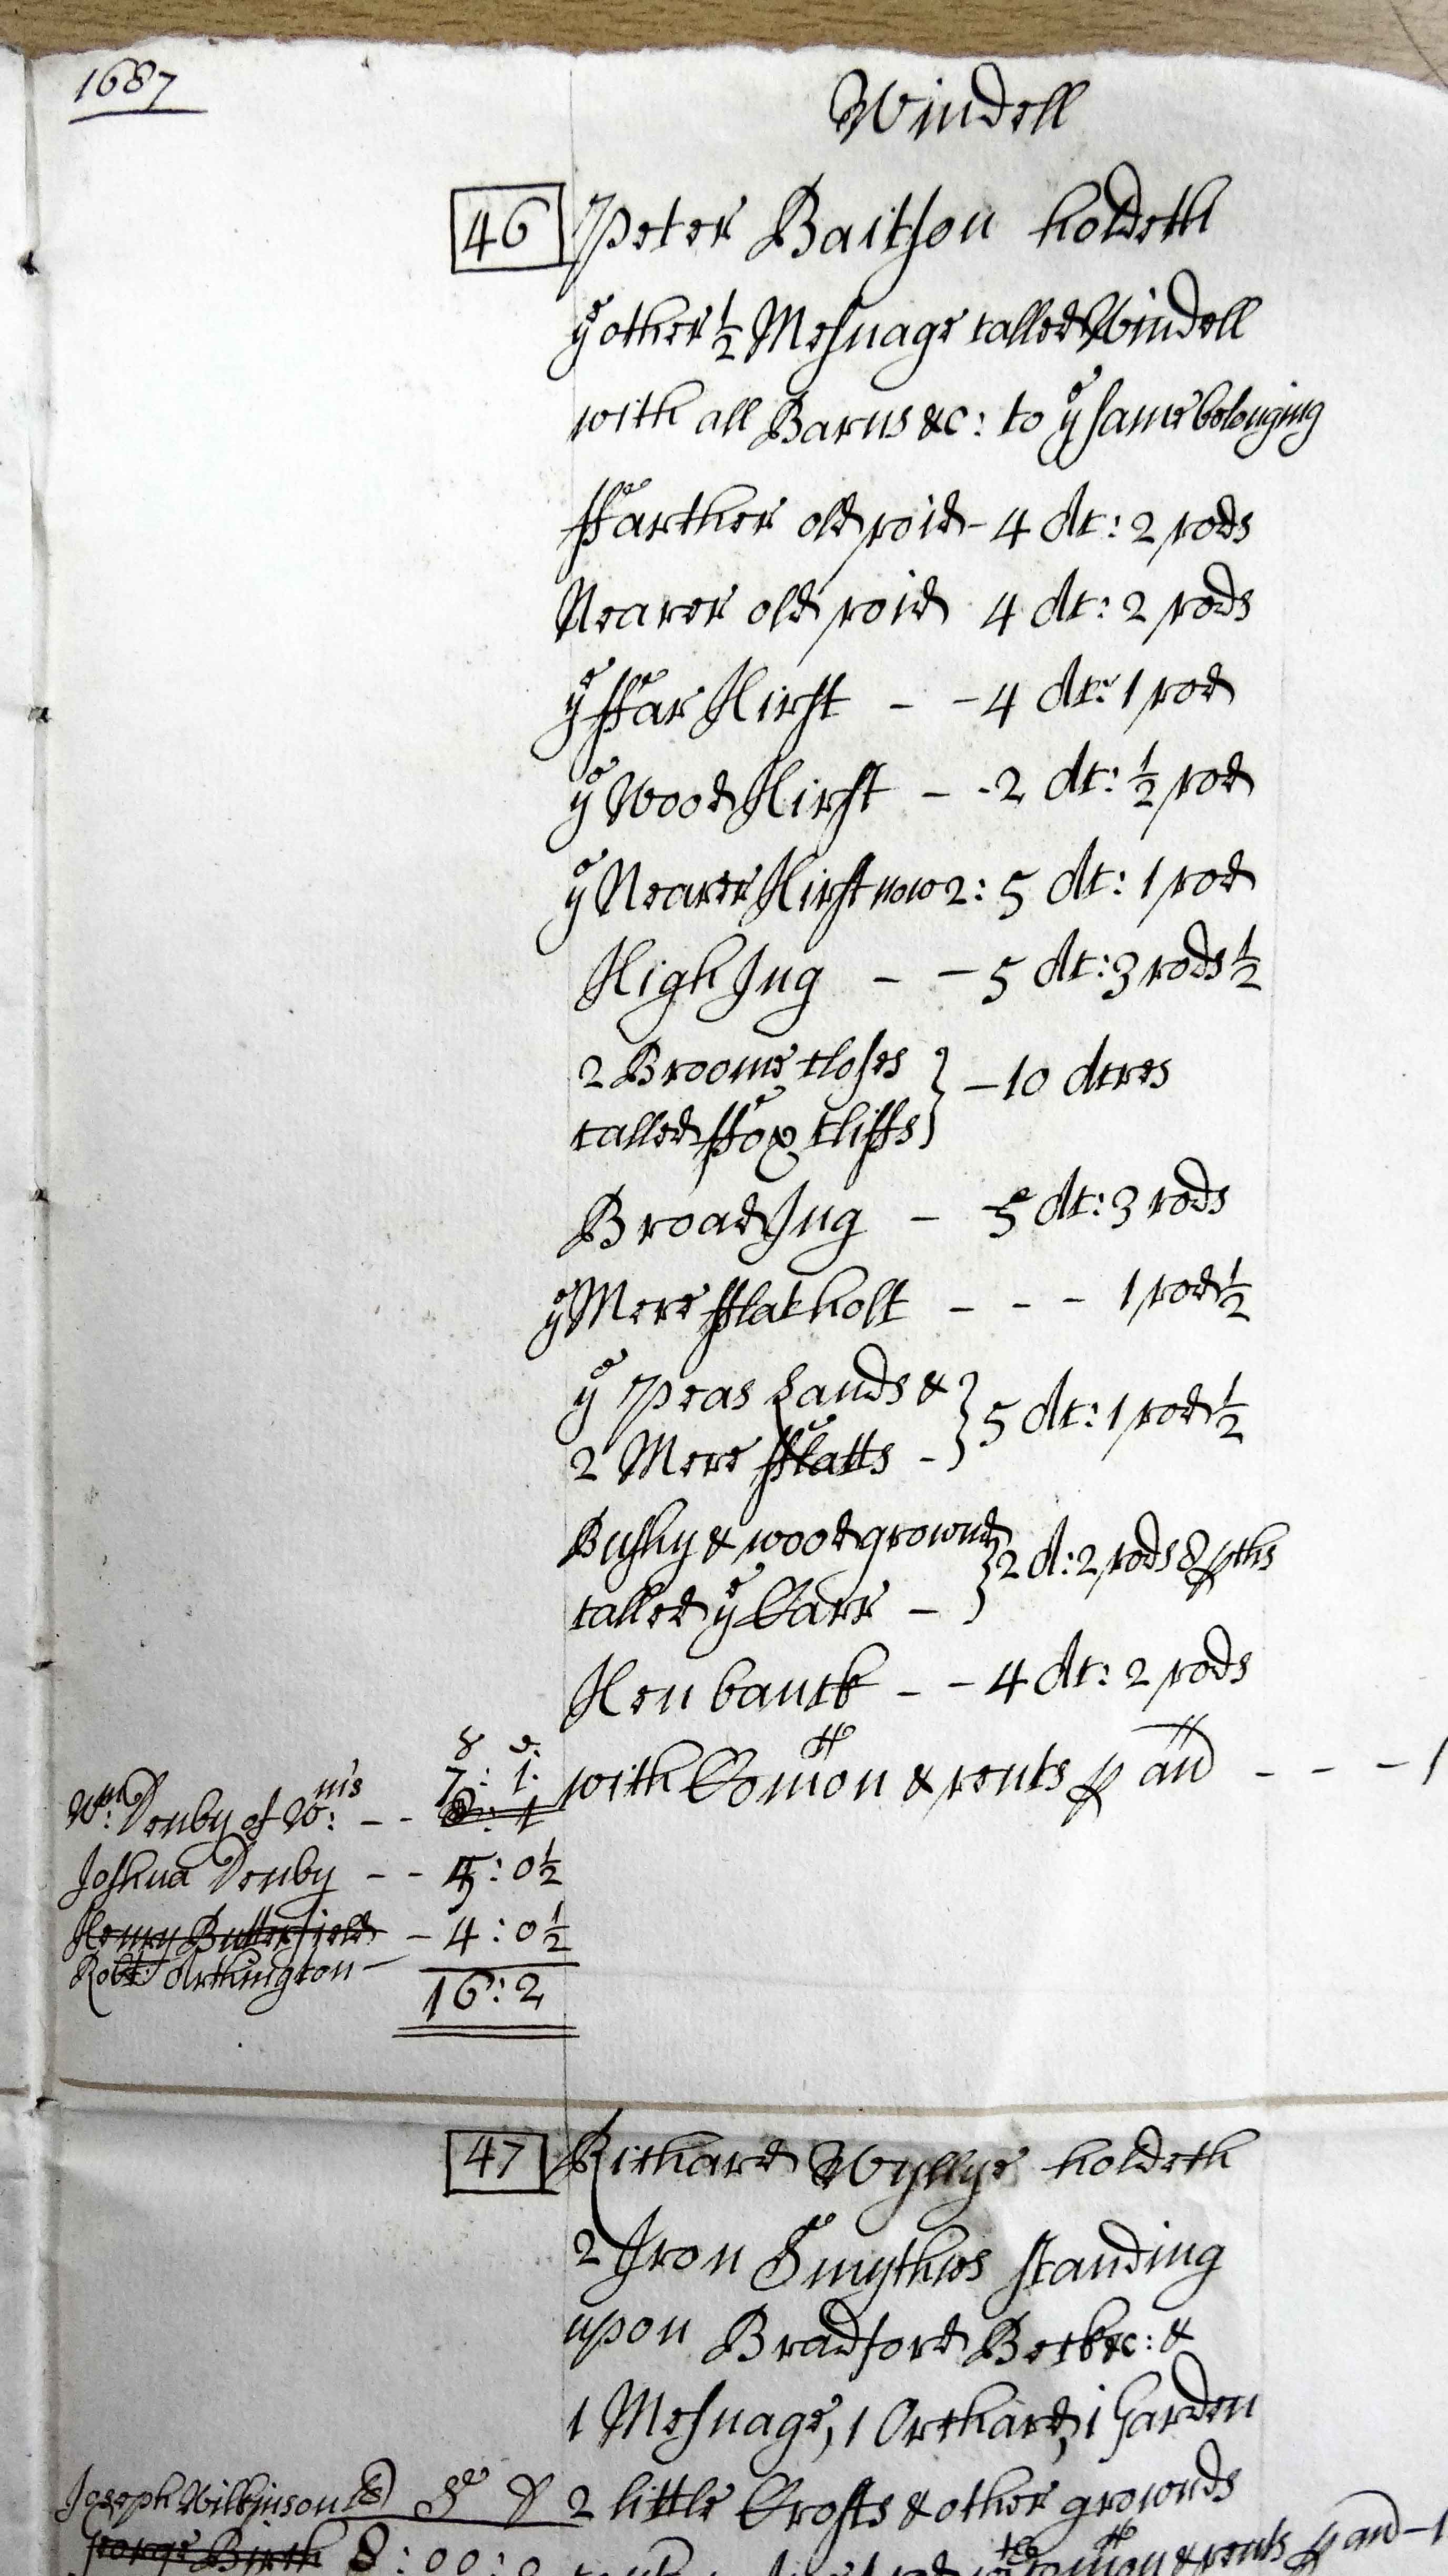 1687
Windell
46 Peter Baitson holdeth
ye other ½ Mesuage called Windell
with all Barns &c: to ye same belonging
ffarther old roid - 4 Ac: 2 rods
Nearer old roid 4 Ac: 2 rods
ye ffar Hirst - - 4 Ac: 1 rod
ye Wood Hirst - - 2 Ac: ½ rod
ye Nearer Hirst now 2: 5 Ac: 1 rod
High Ing - - 5 Ac: 3 rods ½
2 Broome closes
called ffox Cliffs } - 10 Acres
Broad Ing - 5 Ac: 3 rods
ye Mere fflat holt - - - 1 rod ½
ye Peas Lands &
2 Mere fflatts - } 5 Ac: 1 rod ½
Bushy & wood grownd
called ye Carr - } 2 A: 2 rods 8 pths
Hen banck - - 4 Ac: 2 rods
with Comon & rents p an - - - 1
s d
Wm: Denby of Wms: - - 7: 1:
Joshua Denby - - 5: 0½
Henry Butterfield - 4: 0½
Robt: Arthington -
16: 2
47 Richard Wyllye holdeth
2 Iron Smythies standing
upon Bradford Beck &c: &
1 Mesuage, 1 Orchard, 1 Garden
2 little Crofts & other grownds
Joseph Wilkinson
George Birth 8: 00: 0
Comon & rents p an - 1